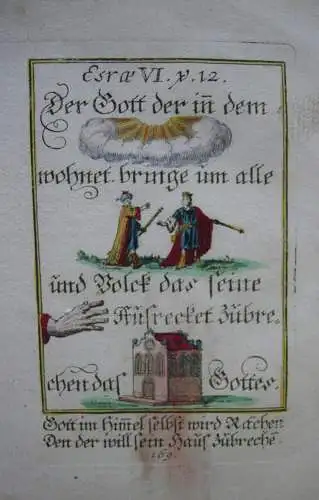 Esræ VI. v. 12.
Der Gott der in̄ dem
wohnet bringe um alle
und Volck das seine
Aüsrecket Zübre-
chen das Gottes.
Gott im Him̄el selbst wird Rächen
Den der will sein Haus Zübrechē.
169.